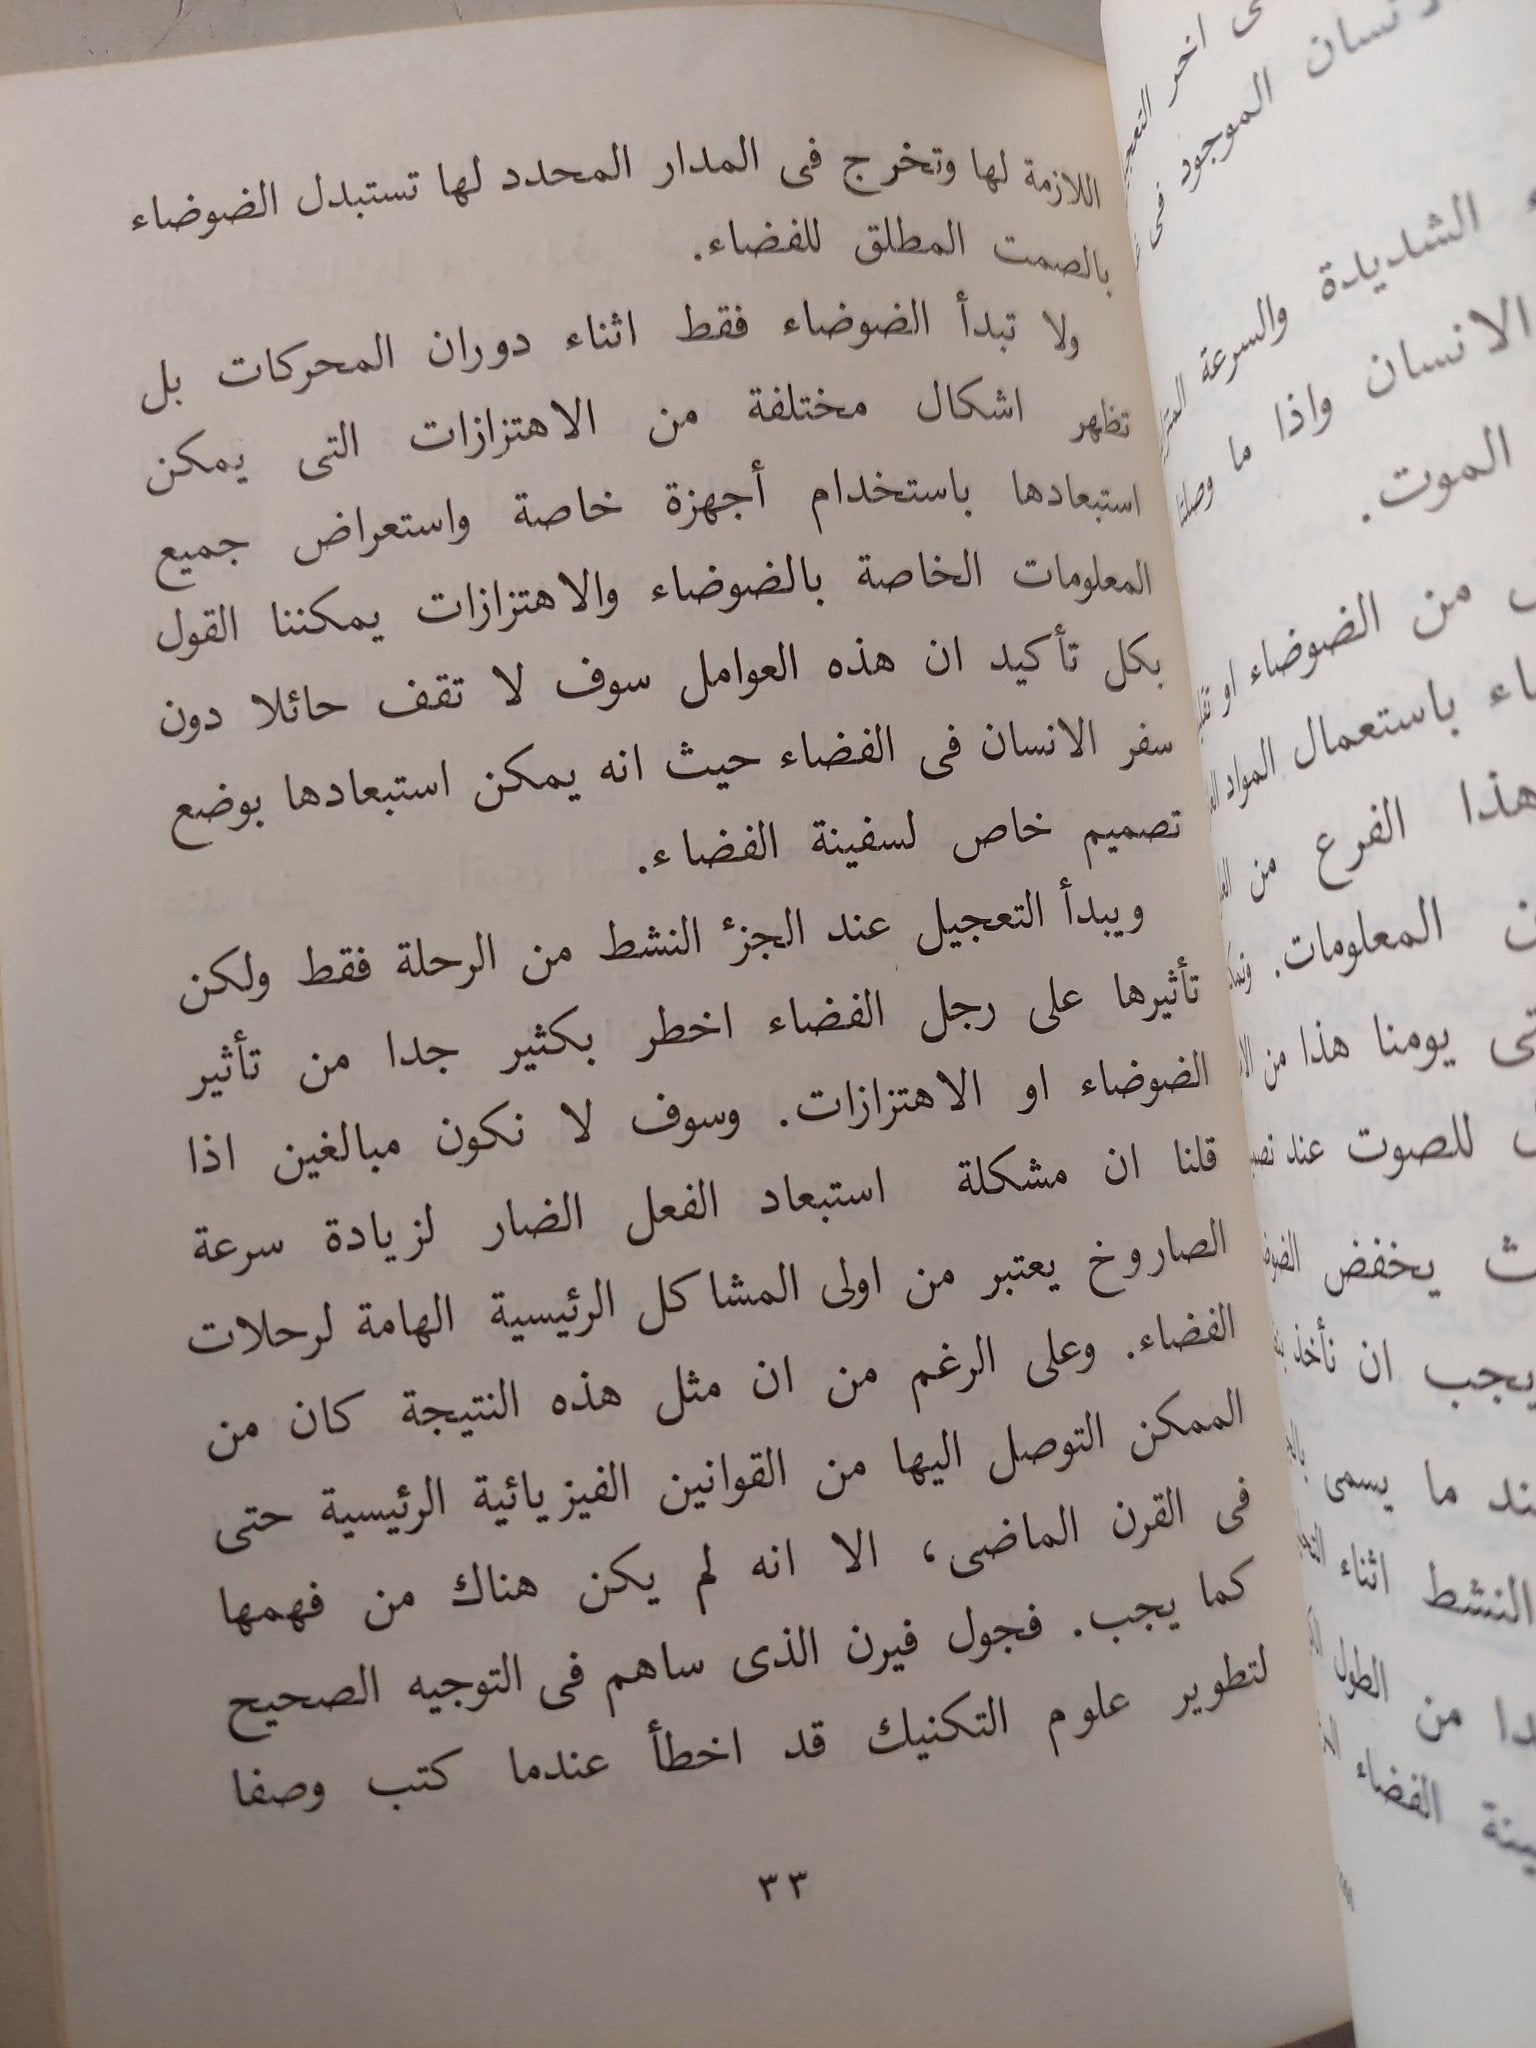 اللازمة لها وتخرج فى المدار المحدد لها تستبدل الضوضاء
بالصمت المطلق للفضاء.
ولا تبدأ الضوضاء فقط اثناء دوران المحركات بل
تظهر اشكال مختلفة من الاهتزازات التى يمكن
استبعادها باستخدام أجهزة خاصة واستعراض جميع
المعلومات الخاصة بالضوضاء والاهتزازات يمكننا القول
بكل تأكيد ان هذه العوامل سوف لا تقف حائلا دون
سفر الانسان فى الفضاء حيث انه يمكن استبعادها بوضع
تصميم خاص لسفينة الفضاء.
ويبدأ التعجيل عند الجزٔ النشط من الرحلة فقط ولكن
تأثيرها على رجل الفضاء اخطر بكثير جدا من تأثير
الضوضاء او الاهتزازات. وسوف لا نكون مبالغين اذا
قلنا ان مشكلة استبعاد الفعل الضار لزيادة سرعة
الصاروخ يعتبر من اولى المشاكل الرئيسية الهامة لرحلات
الفضاء. وعلى الرغم من ان مثل هذه النتيجة كان من
الممكن التوصل اليها من القوانين الفيزيائية الرئيسية حتى
فى القرن الماضى، الا انه لم يكن هناك من فهمها
كما يجب. فجول فيرن الذى ساهم فى التوجيه الصحيح
لتطوير علوم التكنيك قد اخطأ عندما كتب وصفا
٣٣
اخر
الموجود فى
الشديدة والسرعة
الانسان واذا ما
الموت.
من الضوضاء او
باستعمال المواد
هذا الفرع من
المعلومات.
يومنا هذا من
للصوت عند
يخفض
يجب ان نأخذ
ما يسمى
النشط اثناء
من الطول
الفضاء